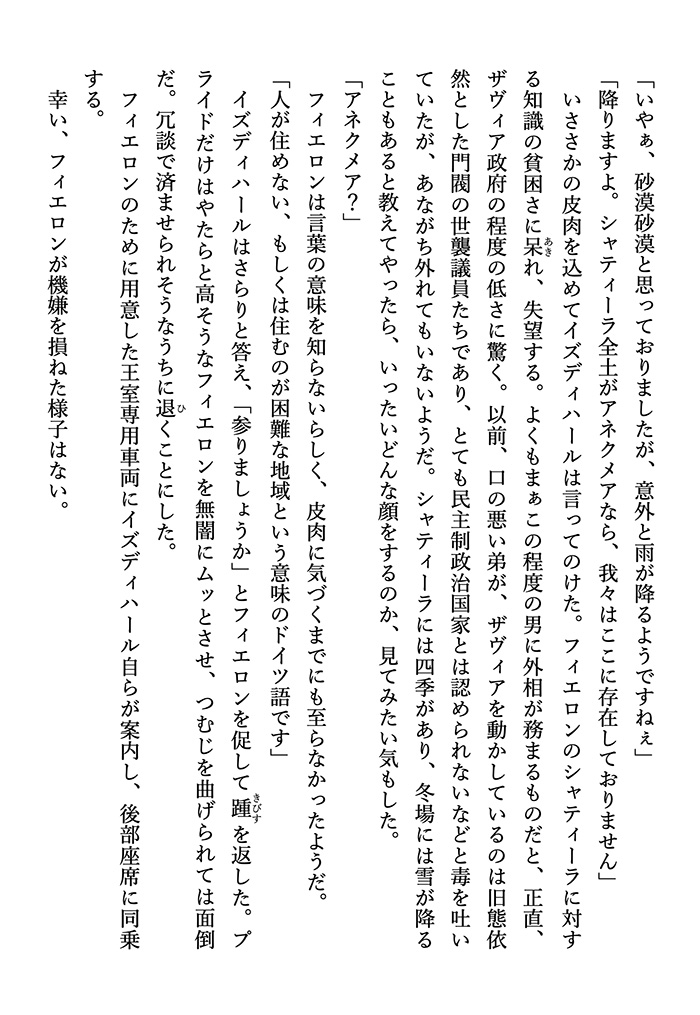 「いやぁ、砂漠砂漠と思っておりましたが、意外と雨が降るようですねぇ」
「降りますよ。シャティーラ全土がアネクメアなら、我々はここに存在しておりません」
　いささかの皮肉を込めてイズディハールは言ってのけた。フィエロンのシャティーラに対す
る知識の貧困さに呆あきれ、失望する。よくもまぁこの程度の男に外相が務まるものだと、正直、
ザヴィア政府の程度の低さに驚く。以前、口の悪い弟が、ザヴィアを動かしているのは旧態依
然とした門閥の世襲議員たちであり、とても民主制政治国家とは認められないなどと毒を吐い
ていたが、あながち外れてもいないようだ。シャティーラには四季があり、冬場には雪が降る
こともあると教えてやったら、いったいどんな顔をするのか、見てみたい気もした。
「アネクメア？」
　フィエロンは言葉の意味を知らないらしく、皮肉に気づくまでにも至らなかったようだ。
「人が住めない、もしくは住むのが困難な地域という意味のドイツ語です」
　イズディハールはさらりと答え、「参りましょうか」とフィエロンを促して踵きびすを返した。プ
ライドだけはやたらと高そうなフィエロンを無闇にムッとさせ、つむじを曲げられては面倒
だ。冗談で済ませられそうなうちに退ひくことにした。
　フィエロンのために用意した王室専用車両にイズディハール自らが案内し、後部座席に同乗
する。
　幸い、フィエロンが機嫌を損ねた様子はない。